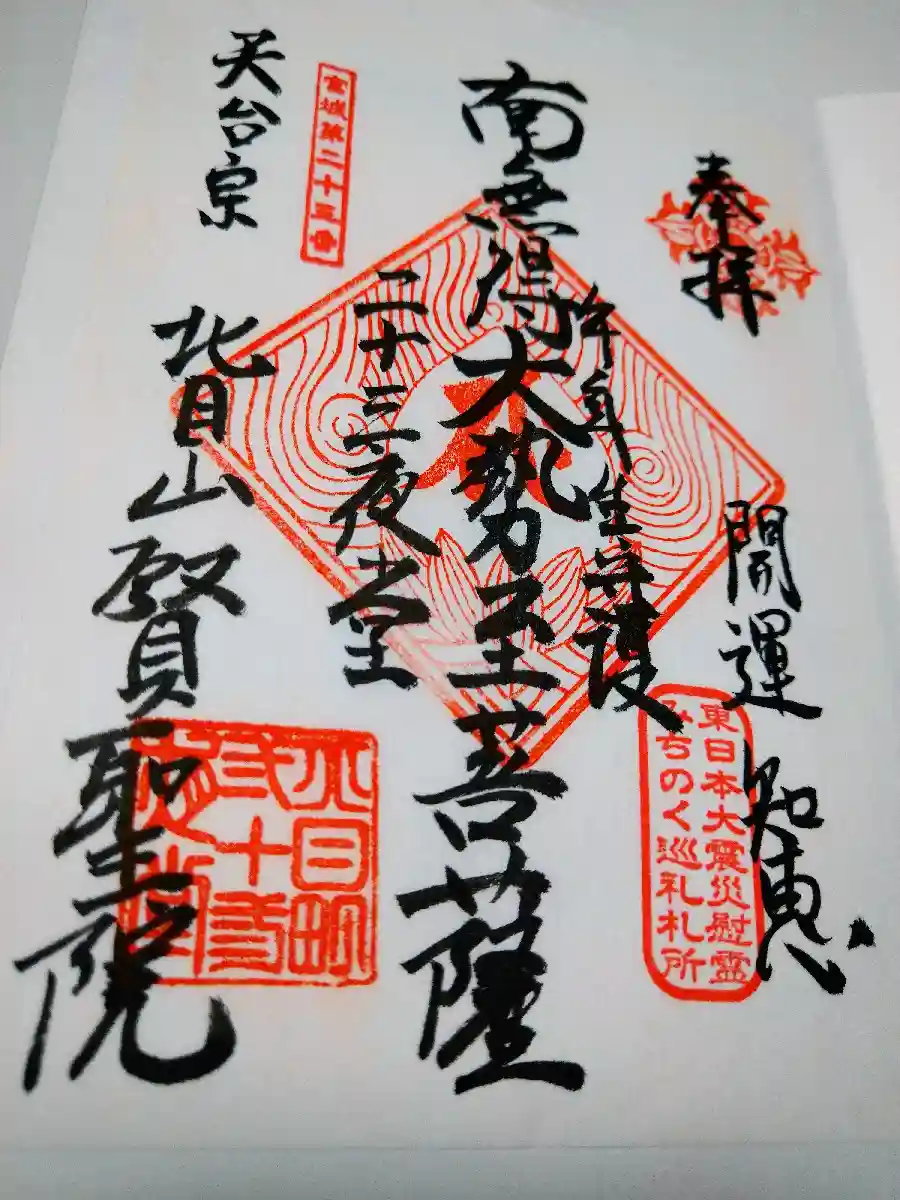 奉拝
開運 知恵
東日本大震災慰霊
みちのく巡礼札所
午年生守護
南無得大勢至菩薩
二十三夜堂
宮城第二十三番
天台宗
北目山 賢聖院